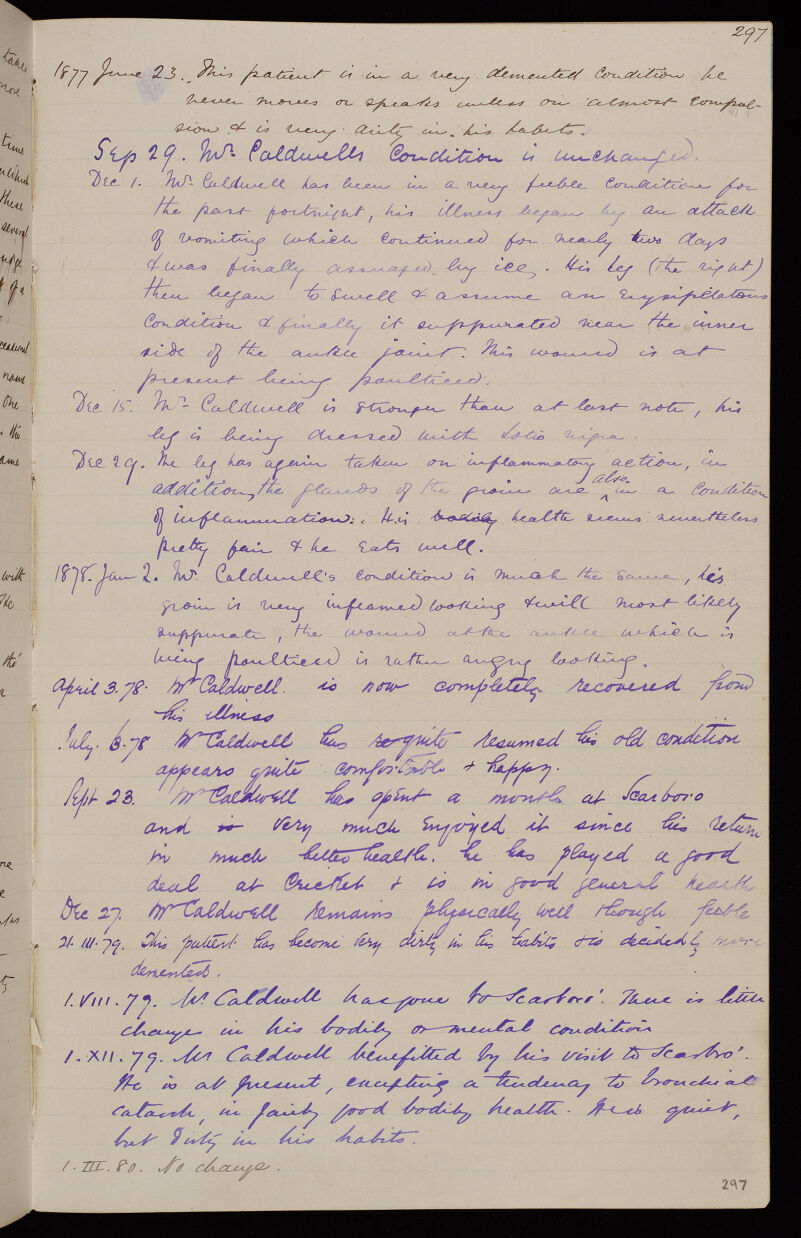 297
1877 June 23. This patient is in a very demented condition he
never moves or speaks unless on almost compul-
sion & is very dirty in his habits.
Sep 29. Mr. Caldwells Condition is unchanged.
Dec 1. Mr. Caldwell has been in a very feeble condition for
the past fortnight, his illness began by an attack
of vomiting which continued for nearly two days
& was finally assuaged by ice. His leg (the right)
then began to swell & assume an Erysipelatous
condition & finally it suppurated near the inner
side of the ankle joint. This wound is at
present being poulticed.
Dec 15. Mr. Caldwell is stronger than at last note, his
leg is being dressed with Lotio nigra.
Dec 29. The leg has again taken on inflammatory action, in
also
addition, the glands of the groin are in a condition
of inflammation. His bodily health seems nevertheless
pretty fair & he eats well.
1878. Jan 2. Mr. Caldwell's condition is much the same, his
groin is very inflamed looking & will most likely
suppurate, the wound at the ankle which is
being poulticed is rather angry looking.
April 3. 78. Mr Caldwell is now completely recovered from
his illness
July. 6. 78 Mr Caldwell has re quite resumed his old condition
appears quite comfortable & happy.
Sept 23. Mr Caldwell has spent a month at Scarboro
and is very much enjoyed it since his return
in much better health. he has played a good
deal at Cricket & is in good general health
Dec 27. Mr Caldwell remains physically well though feeble
21. III. 79. This patient has become very dirty in his habits & is decidedly more
demented.
1. VIII. 79. Mr. Caldwell has gone to Scarboro'. There is little
change in his bodily or mental condition
1. XII. 79. Mr Caldwell benefitted by his visit to Scarbro'.
He is at present, excepting a tendency to bronchial
catarrh, in fairly good bodily health. He is quiet,
but dirty in his habits.
1. III. 80. No change.
297